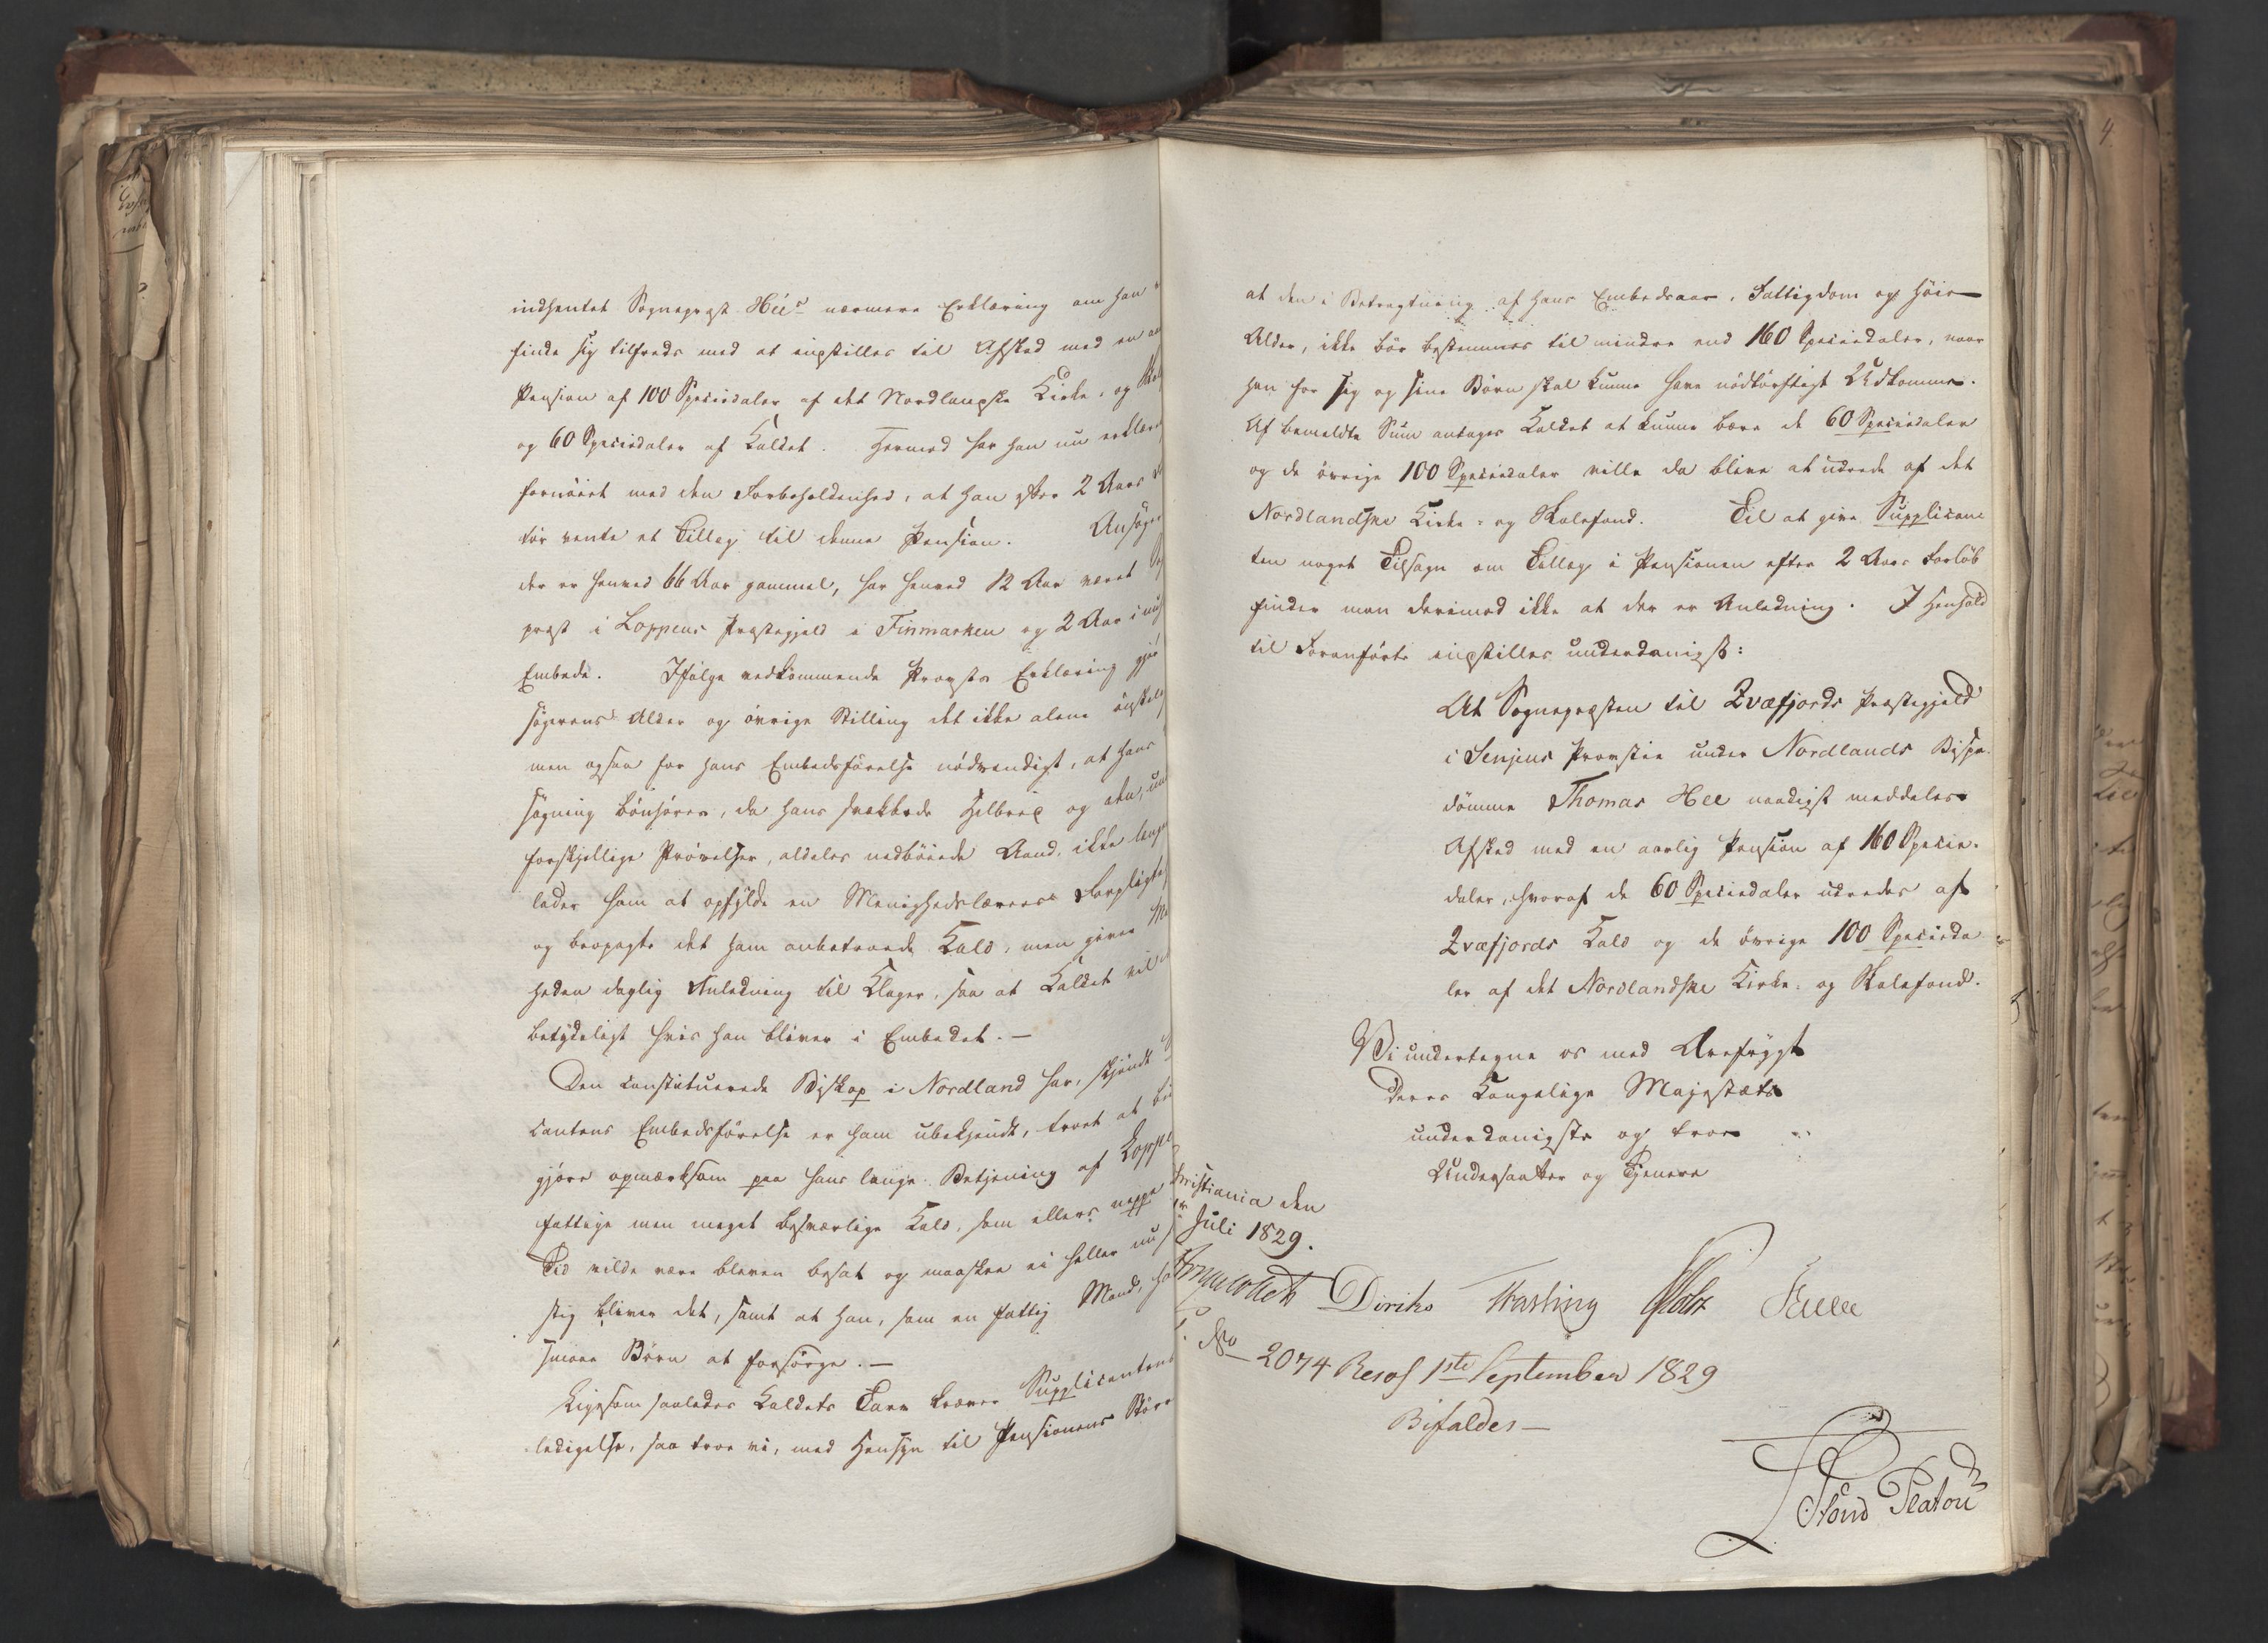 indhentet Sognepræst Heés nærmere Erklæring om han
finde sig tilfreds med at indstilles til Afsked med en
Pension af 100 Speciedaler af det Nordlandske Kirke- og
og 60 Speciedaler af Kaldet. Hermed har han nu erklæret
fornöiet med den Forbeholdenhed, at han efter 2 Aars
tör vente et Tillæg til denne Pension. Ansöge
der er henved 66 Aar gammel, har henved 12 Aar været
præst i Loppens Præstegjeld i Finmarken og 2 Aar i
Embede. Ifölge vedkommende Provsts Erklæring gjör
sögerens Alder og övrige Stilling det ikke alene önskeligt
men ogsaa for hans Embedsförelse nödvendigt, at hans
sögning bönhöres, da hans svækkede Helbred og
forskjellige Prövelser, aldeles nedböiede Aand, ikke længer
lader ham at opfylde en Menighedslærers Forpligtelser
og besørge det ham anbetroede Kald, men giver
heden daglig Anledning til Klager, saa at Kaldet vil
betydeligt hvis han bliver i Embedet. —
Den constituerede Biskop i Nordland har, skjöndt
cantens Embedsförelse er ham ubekjendt, troet at
gjöre opmærksom paa hans lange Betjening af Loppe
fattige men meget besværlige Kald, som ellers neppe
Tid vilde være bleven besat og maaskee ei heller
stig bliver det, samt at han, som en fattig Mand,
smaae Börn at forsörge. —
Ligesom saaledes Kaldets Tarv kræver Supplicantens
ledigelse, saa troe vi, med Hensyn til Pensionens Störrelse
at den i Betragtning af hans Embedsaar, Fattigdom og höie
Alder, ikke bör bestemmes til mindre end 160 Speciedaler, naar
han for sig og sine Börn skal kunne have nödtörftigt Udkomme.
Af bemeldte Sum antages Kaldet at kunne bære de 60 Speciedaler
og de övrige 100 Speciedaler ville da blive at udrede af det
Nordlandske Kirke- og Skolefond. Til at give Supplican
ten noget Tilsagn om Tillæg i Pensionen efter 2 Aars Forlöb
finder man derimod ikke at der er Anledning. I Henhold
til Foranförte indstilles underdanigst:
At Sognepræsten til Qvæfjords Præstegjeld
i Senjens Provstie under Nordlands Bispe-
dömme Thomas Hee naadigst meddeles
Afsked med en aarlig Pension af 160 Specie-
daler, hvoraf de 60 Speciedaler udredes af
Qvæfjords Kald og de övrige 100 Specieda
ler af det Nordlandske Kirke- og Skolefond.
Vi undertegne os med Ærefrygt
Deres Kongelige Majestæts
underdanigste og troe
Undersaatter og Tjenere
Christiania den
Juli 1829.
Jonas Collett Diriks Krog Fasting Holst
No 2074 Resol 1ste September 1829
Bifaldes —
Stoud Platou